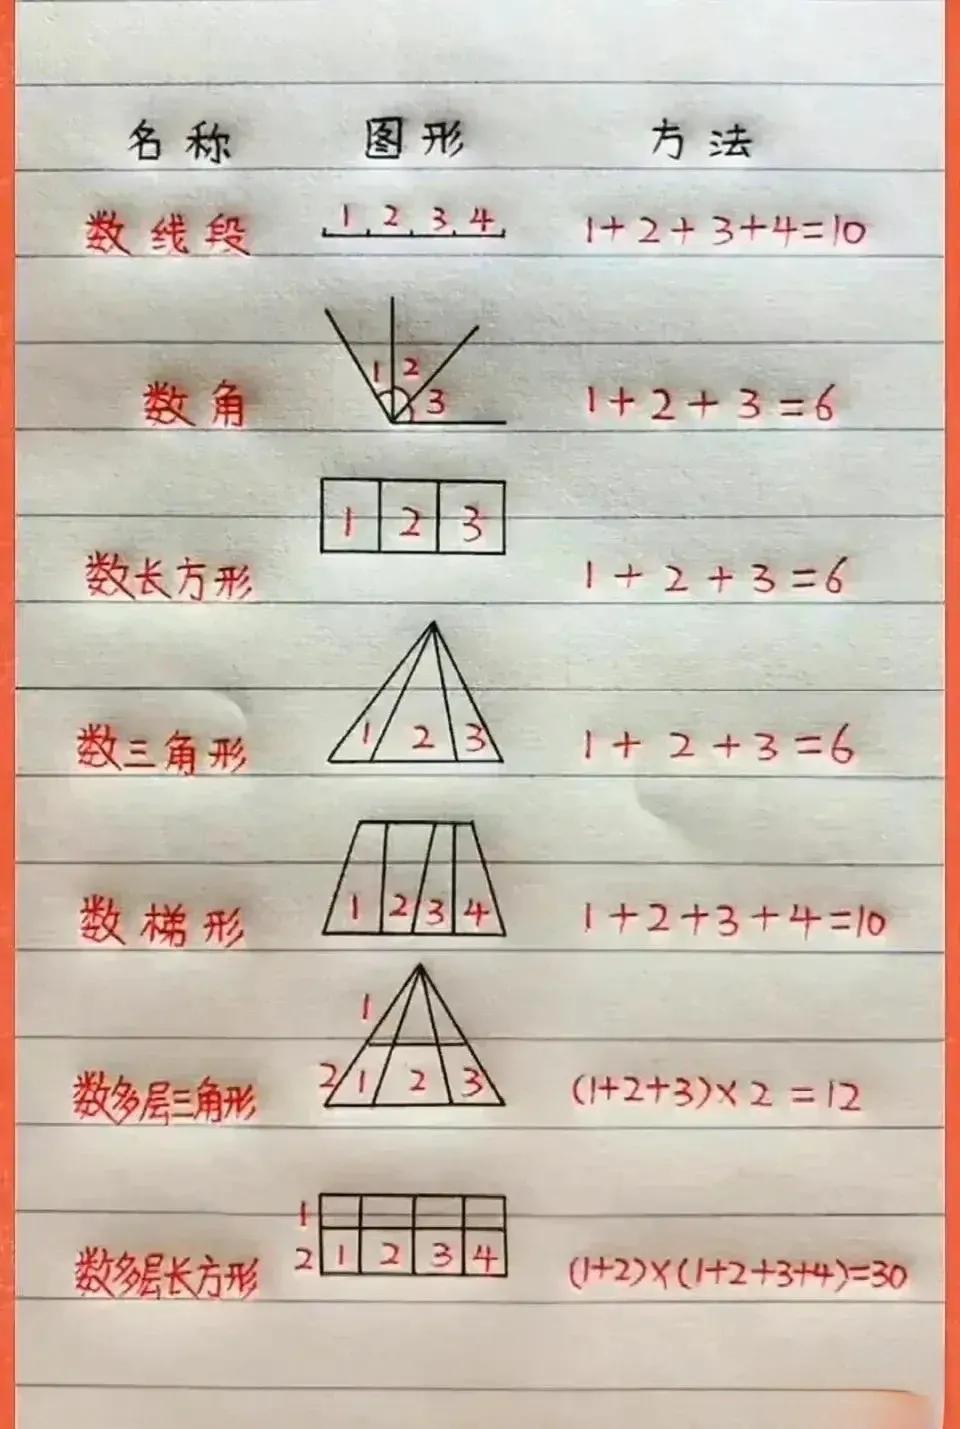 名称 图形 方法
数线段 1 2 3 4 1+2+3+4=10
数角 1 2 3 1+2+3=6
数长方形 1 2 3 1+2+3=6
数三角形 1 2 3 1+2+3=6
数梯形 1 2 3 4 1+2+3+4=10
1
数多层三角形 2 1 2 3 (1+2+3)×2=12
1
数多层长方形 2 1 2 3 4 (1+2)×(1+2+3+4)=30